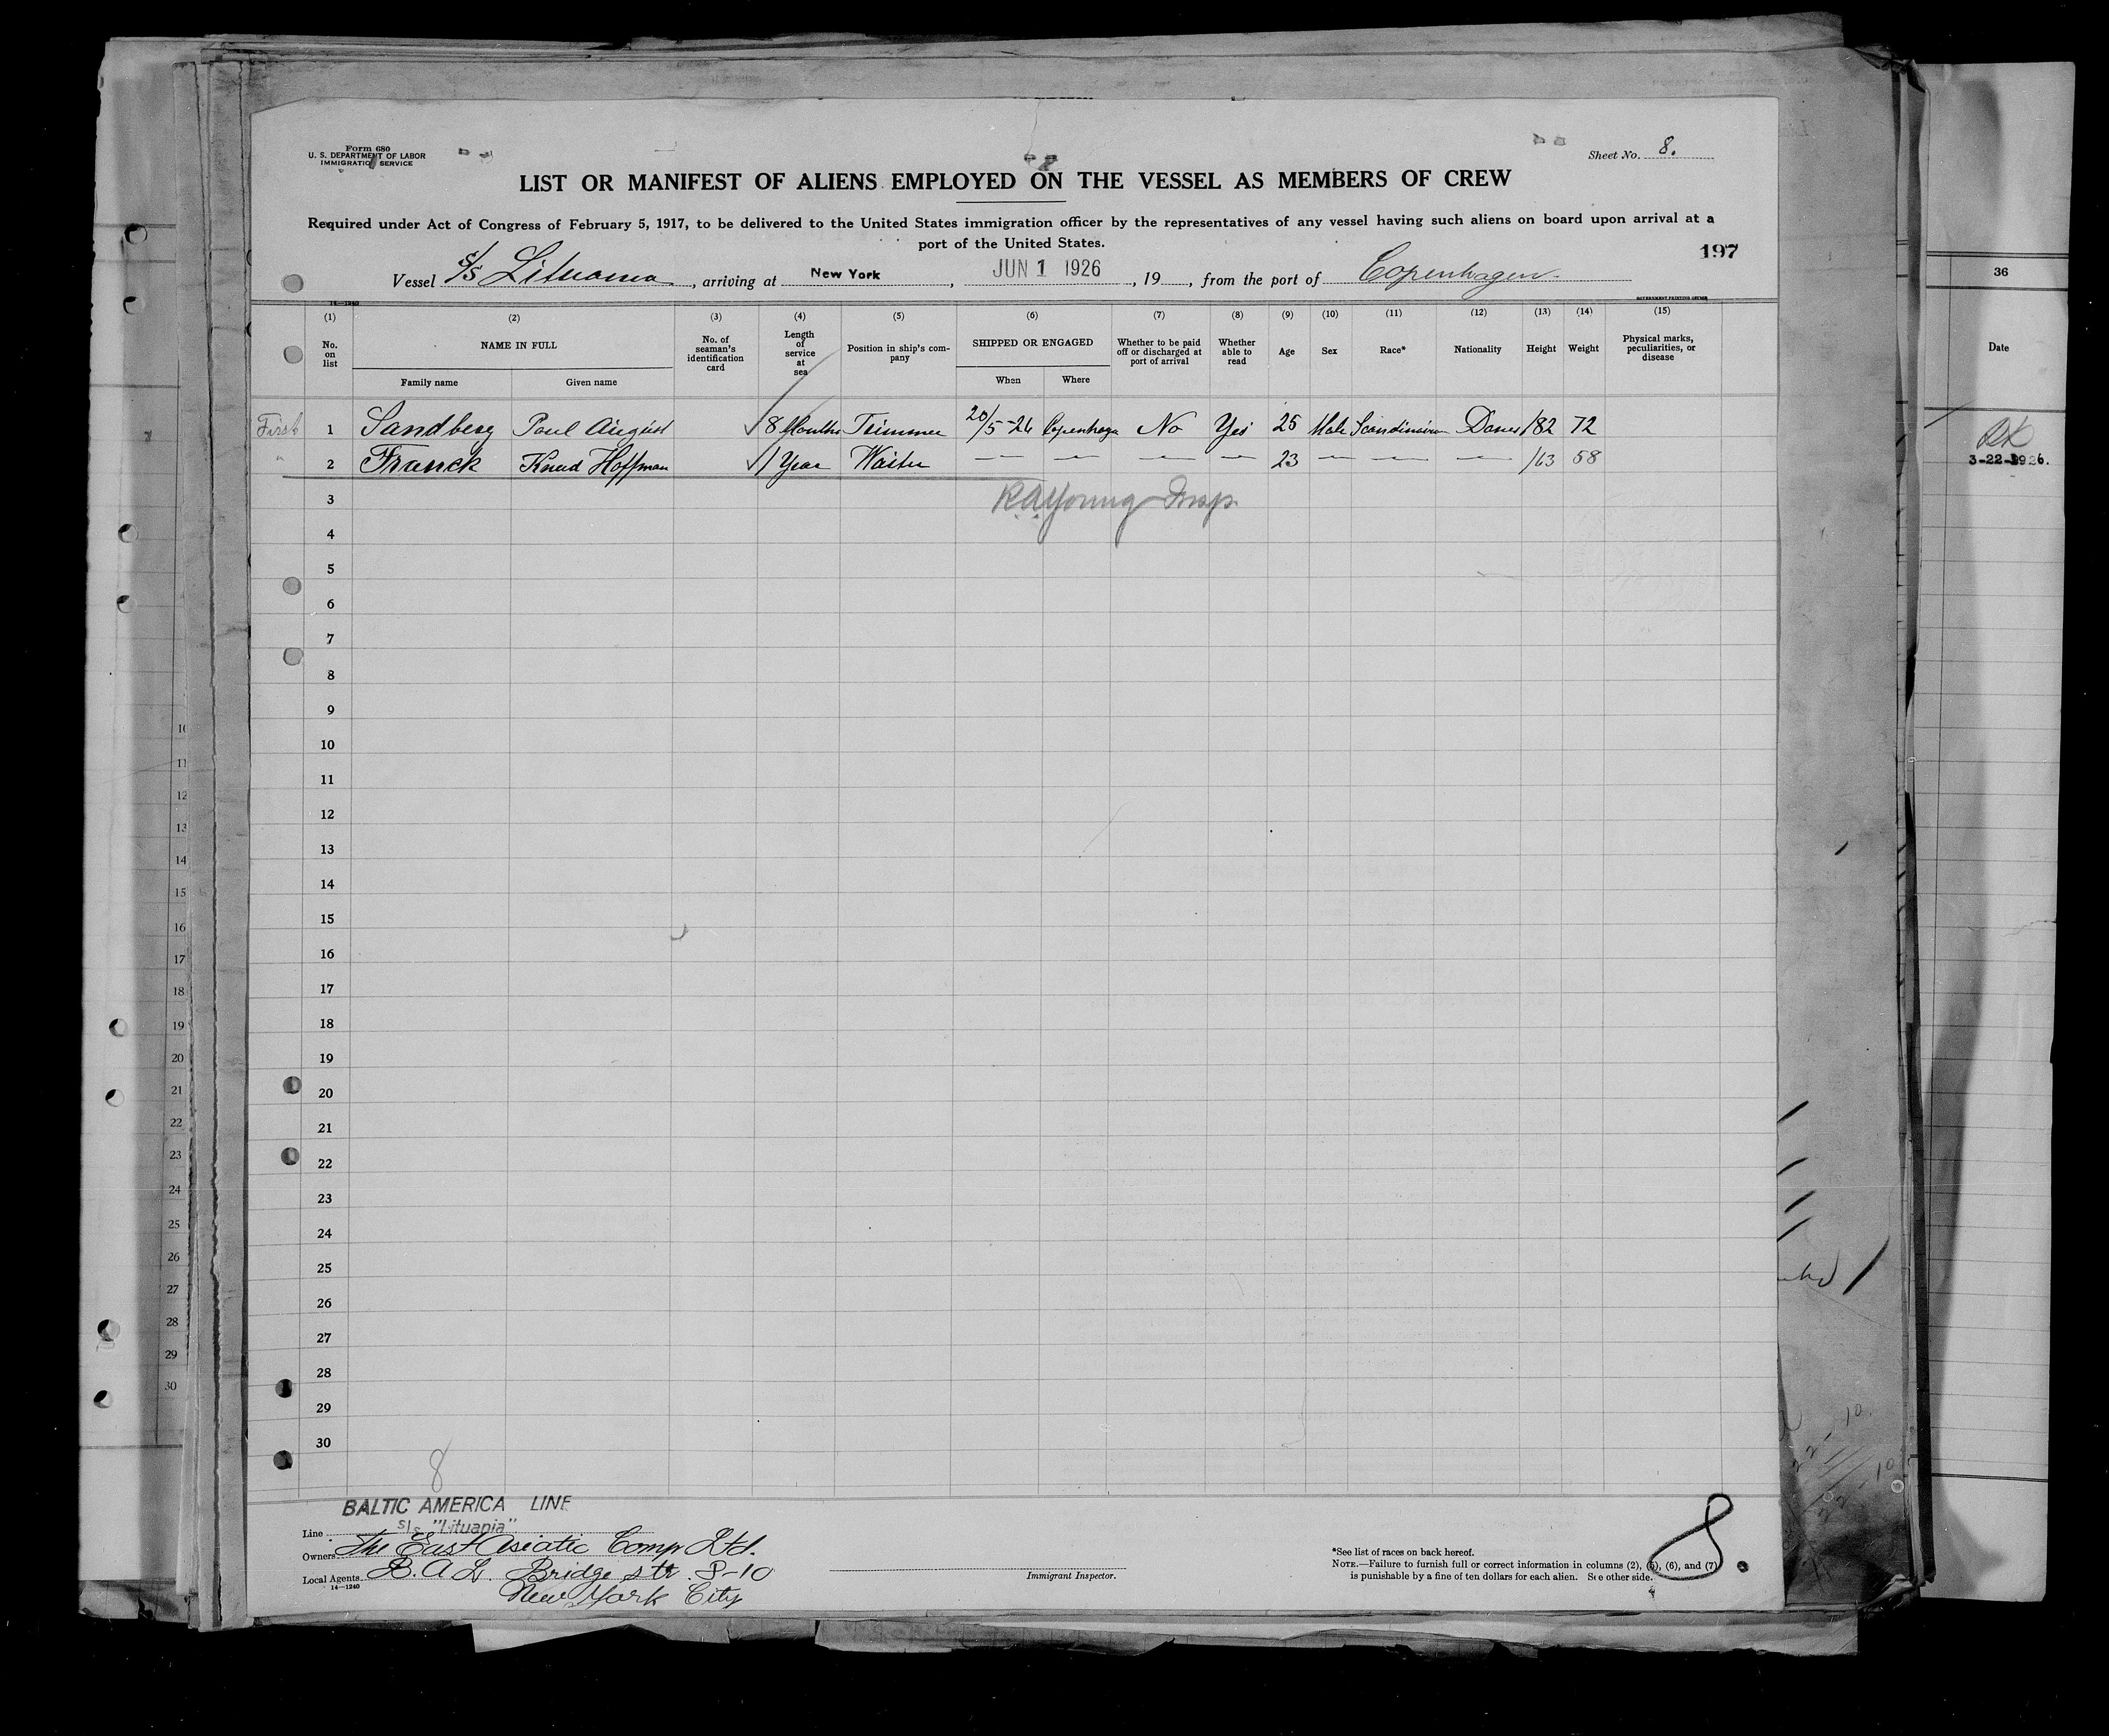 Form 680
U. S. DEPARTMENT OF LABOR
IMMIGRATION SERVICE
Sheet No. 8.
LIST OR MANIFEST OF ALIENS EMPLOYED ON THE VESSEL AS MEMBERS OF CREW
Required under Act of Congress of February 5, 1917, to be delivered to the United States immigration officer by the representatives of any vessel having such aliens on board upon arrival at a
port of the United States.
197
Vessel s/s Lituania, arriving at New York, JUN 1 1926, 19, from the port of Copenhagen.
14—1240
GOVERNMENT PRINTING OFFICE
(1) (2) (3) (4) (5) (6) (7) (8) (9) (10) (11) (12) (13) (14) (15)
No. on list NAME IN FULL Family name Given name No. of seaman's identification card Length of service at sea Position in ship's company SHIPPED OR ENGAGED When Where Whether to be paid off or discharged at port of arrival Whether able to read Age Sex Race* Nationality Height Weight Physical marks, peculiarities, or disease
First 1 Sandberg Paul August 8 Months Trimmer 20/5-26 Copenhagen No Yes 25 Male Scandinavian Danes 182 72
" 2 Franck Knud Hoffman 1 Year Waiter — — — — 23 — — — 163 58
3 RA Young Insp.
4
5
6
7
8
9
10
11
12
13
14
15
16
17
18
19
20
21
22
23
24
25
26
27
28
29
30
8
BALTIC AMERICA LINE
Line s/s "Lituania"
Owners The East Asiatic Comp Ltd.
Local Agents B. A. L. Bridge str. 8-10
14—1240
New York City
Immigrant Inspector.
*See list of races on back hereof.
NOTE.—Failure to furnish full or correct information in columns (2), (5), (6), and (7)
is punishable by a fine of ten dollars for each alien. See other side.
8.
36
Date
3-22-1926.
10
11
12
13
14
15
16
17
18
19
20
21
22
23
24
25
26
27
28
29
30